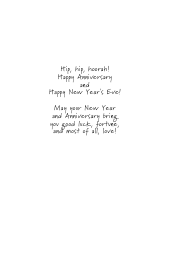 Hip, hip, hoorah!
Happy Anniversary
and
Happy New Year's Eve!
May your New Year
and Anniversary bring
you good luck, fortune,
and most of all, love!